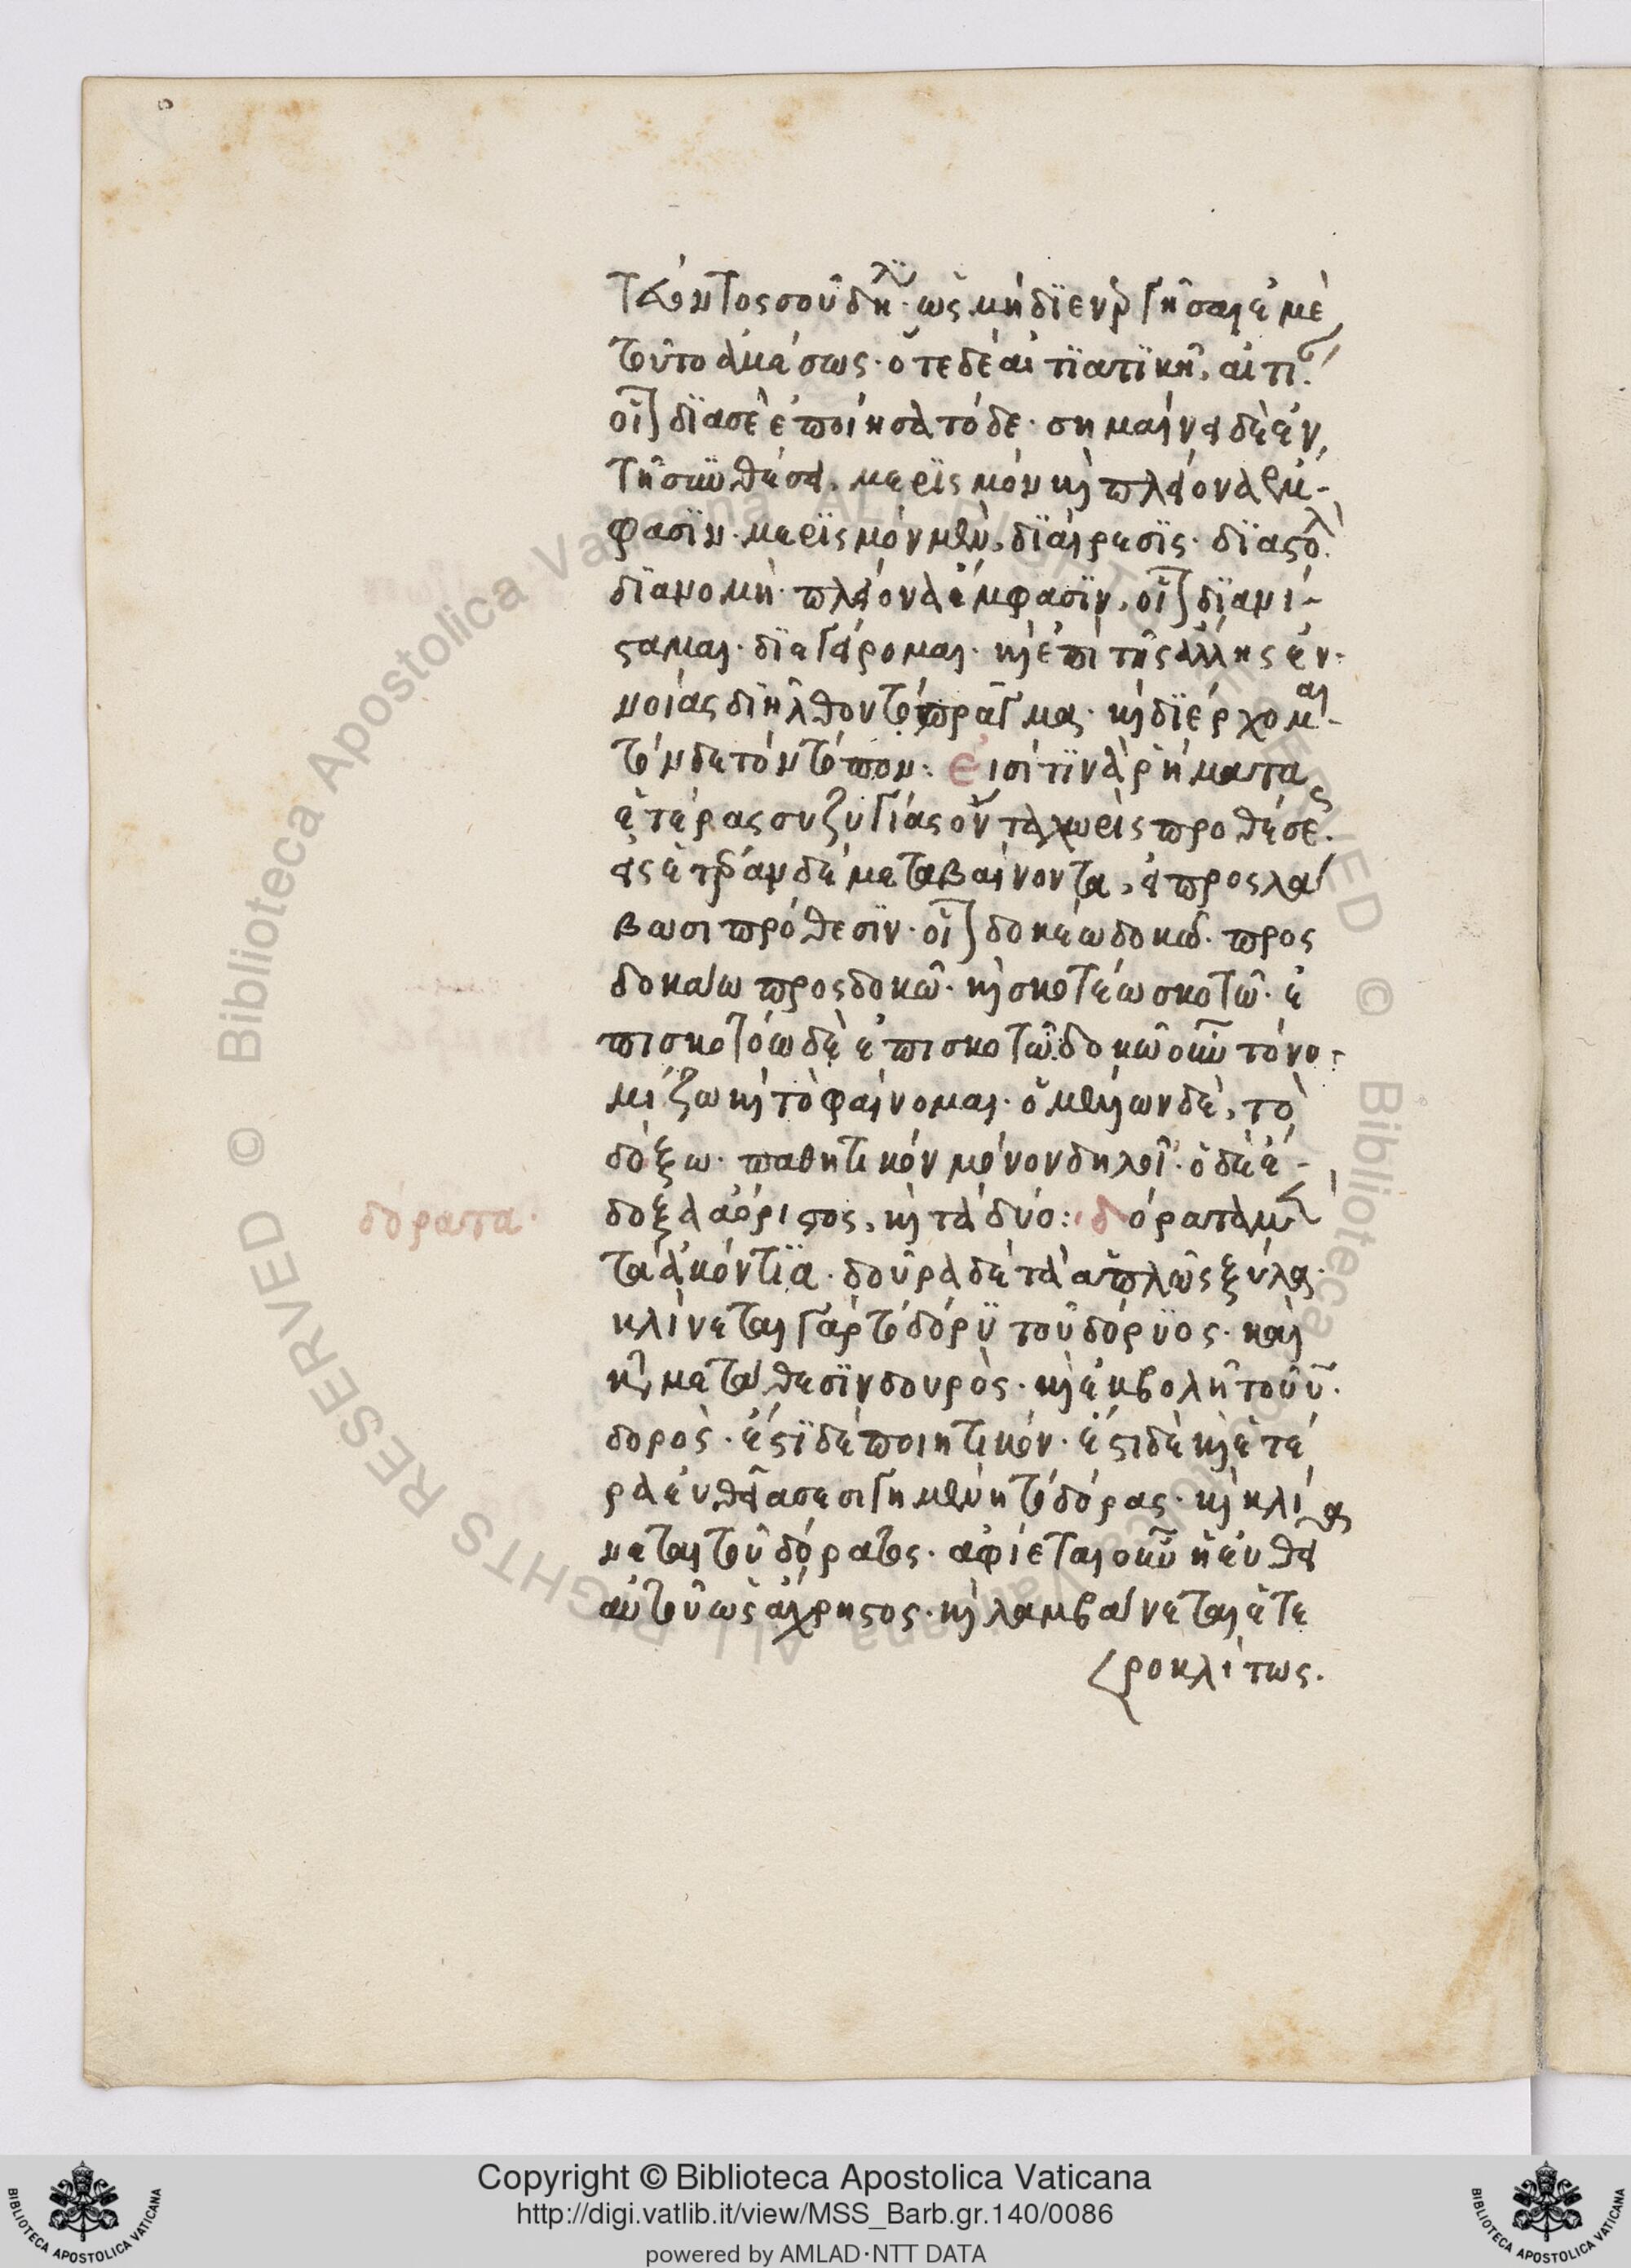 τῶντος σοῦ δηλ· ὡς μὴ δϊενεργῆσαι ἐμὲ
τοῦτο ἀμέσως· ὅτε δὲ αἰτϊατϊκῆ, αἰτι
οἷον δϊα σὲ ἐποίησα τόδε· σημαίνει δὲ ἐν
τῆ συνθέσει, μερϊσμὸν καὶ πλείονα ἔμ-
φασϊν· μερϊσμὸν μὲν, δϊαίρεσϊς· δϊαστολ
δϊανομή· πλείονα ἔμφασϊν, οἷον δϊανί-
σταμαι· δϊεγείρομαι· καὶ ἐπὶ τῆς ἄλλης ἐν-
νοίας διῆλθον τὸ πρᾶγμα· καὶ δϊέρχομαι
τόνδε τὸν τόπον: Εἰσί τϊνα ῥήματα
ἑτέρας συζυγίας ὄντα χωρὶς προθέσεως
εἰς ἑτέραν δὲ μεταβαίνοντα, εἰ προσλά
βωσι πρόθεσϊν· οἷον δοκέω δοκῶ· προς
δοκάω προσδοκῶ· καὶ σκοτέω σκοτῶ· ἐ
πισκοτόω δὲ ἐπισκοτῶ· δοκῶ οὖν τὸ νο-
μίζω καὶ τὸ φαίνομαι· ὁ μέλλων δὲ, τὸ
δόξω· παθητικὸν μόνον δηλοῖ· ὁ δὲ ἔ-
δοξα ἀόριστος, καὶ τὰ δύο: δόρατα μὲν
δόρατα·
τὰ ἀκόντϊα· δοῦρα δὲ τὰ ἁπλῶς ξύλα·
κλίνεται γὰρ τὸ δόρϋ τοῦ δόρϋος· καὶ
κατὰ μετάθεσϊν δουρὸς· καὶ ἐκβολῆ τοῦ υ
δορὸς· ἔστϊ δὲ ποιητικόν· ἔστι δὲ καὶ ἑτέ
ρα εὐθεῖα σεσιγημένη τὸ δόρας· καὶ κλί
νεται τοῦ δόρατος· ἀφίεται οὖν ἡ εὐθεῖα
αὐτοῦ ὡς ἄχρηστος· καὶ λαμβάνεται ἑτε
ροκλίτως.
Copyright © Biblioteca Apostolica Vaticana
http://digi.vatlib.it/view/MSS_Barb.gr.140/0086
powered by AMLAD·NTT DATA
BIBLIOTECA APOSTOLICA VATICANA
BIBLIOTECA APOSTOLICA VATICANA